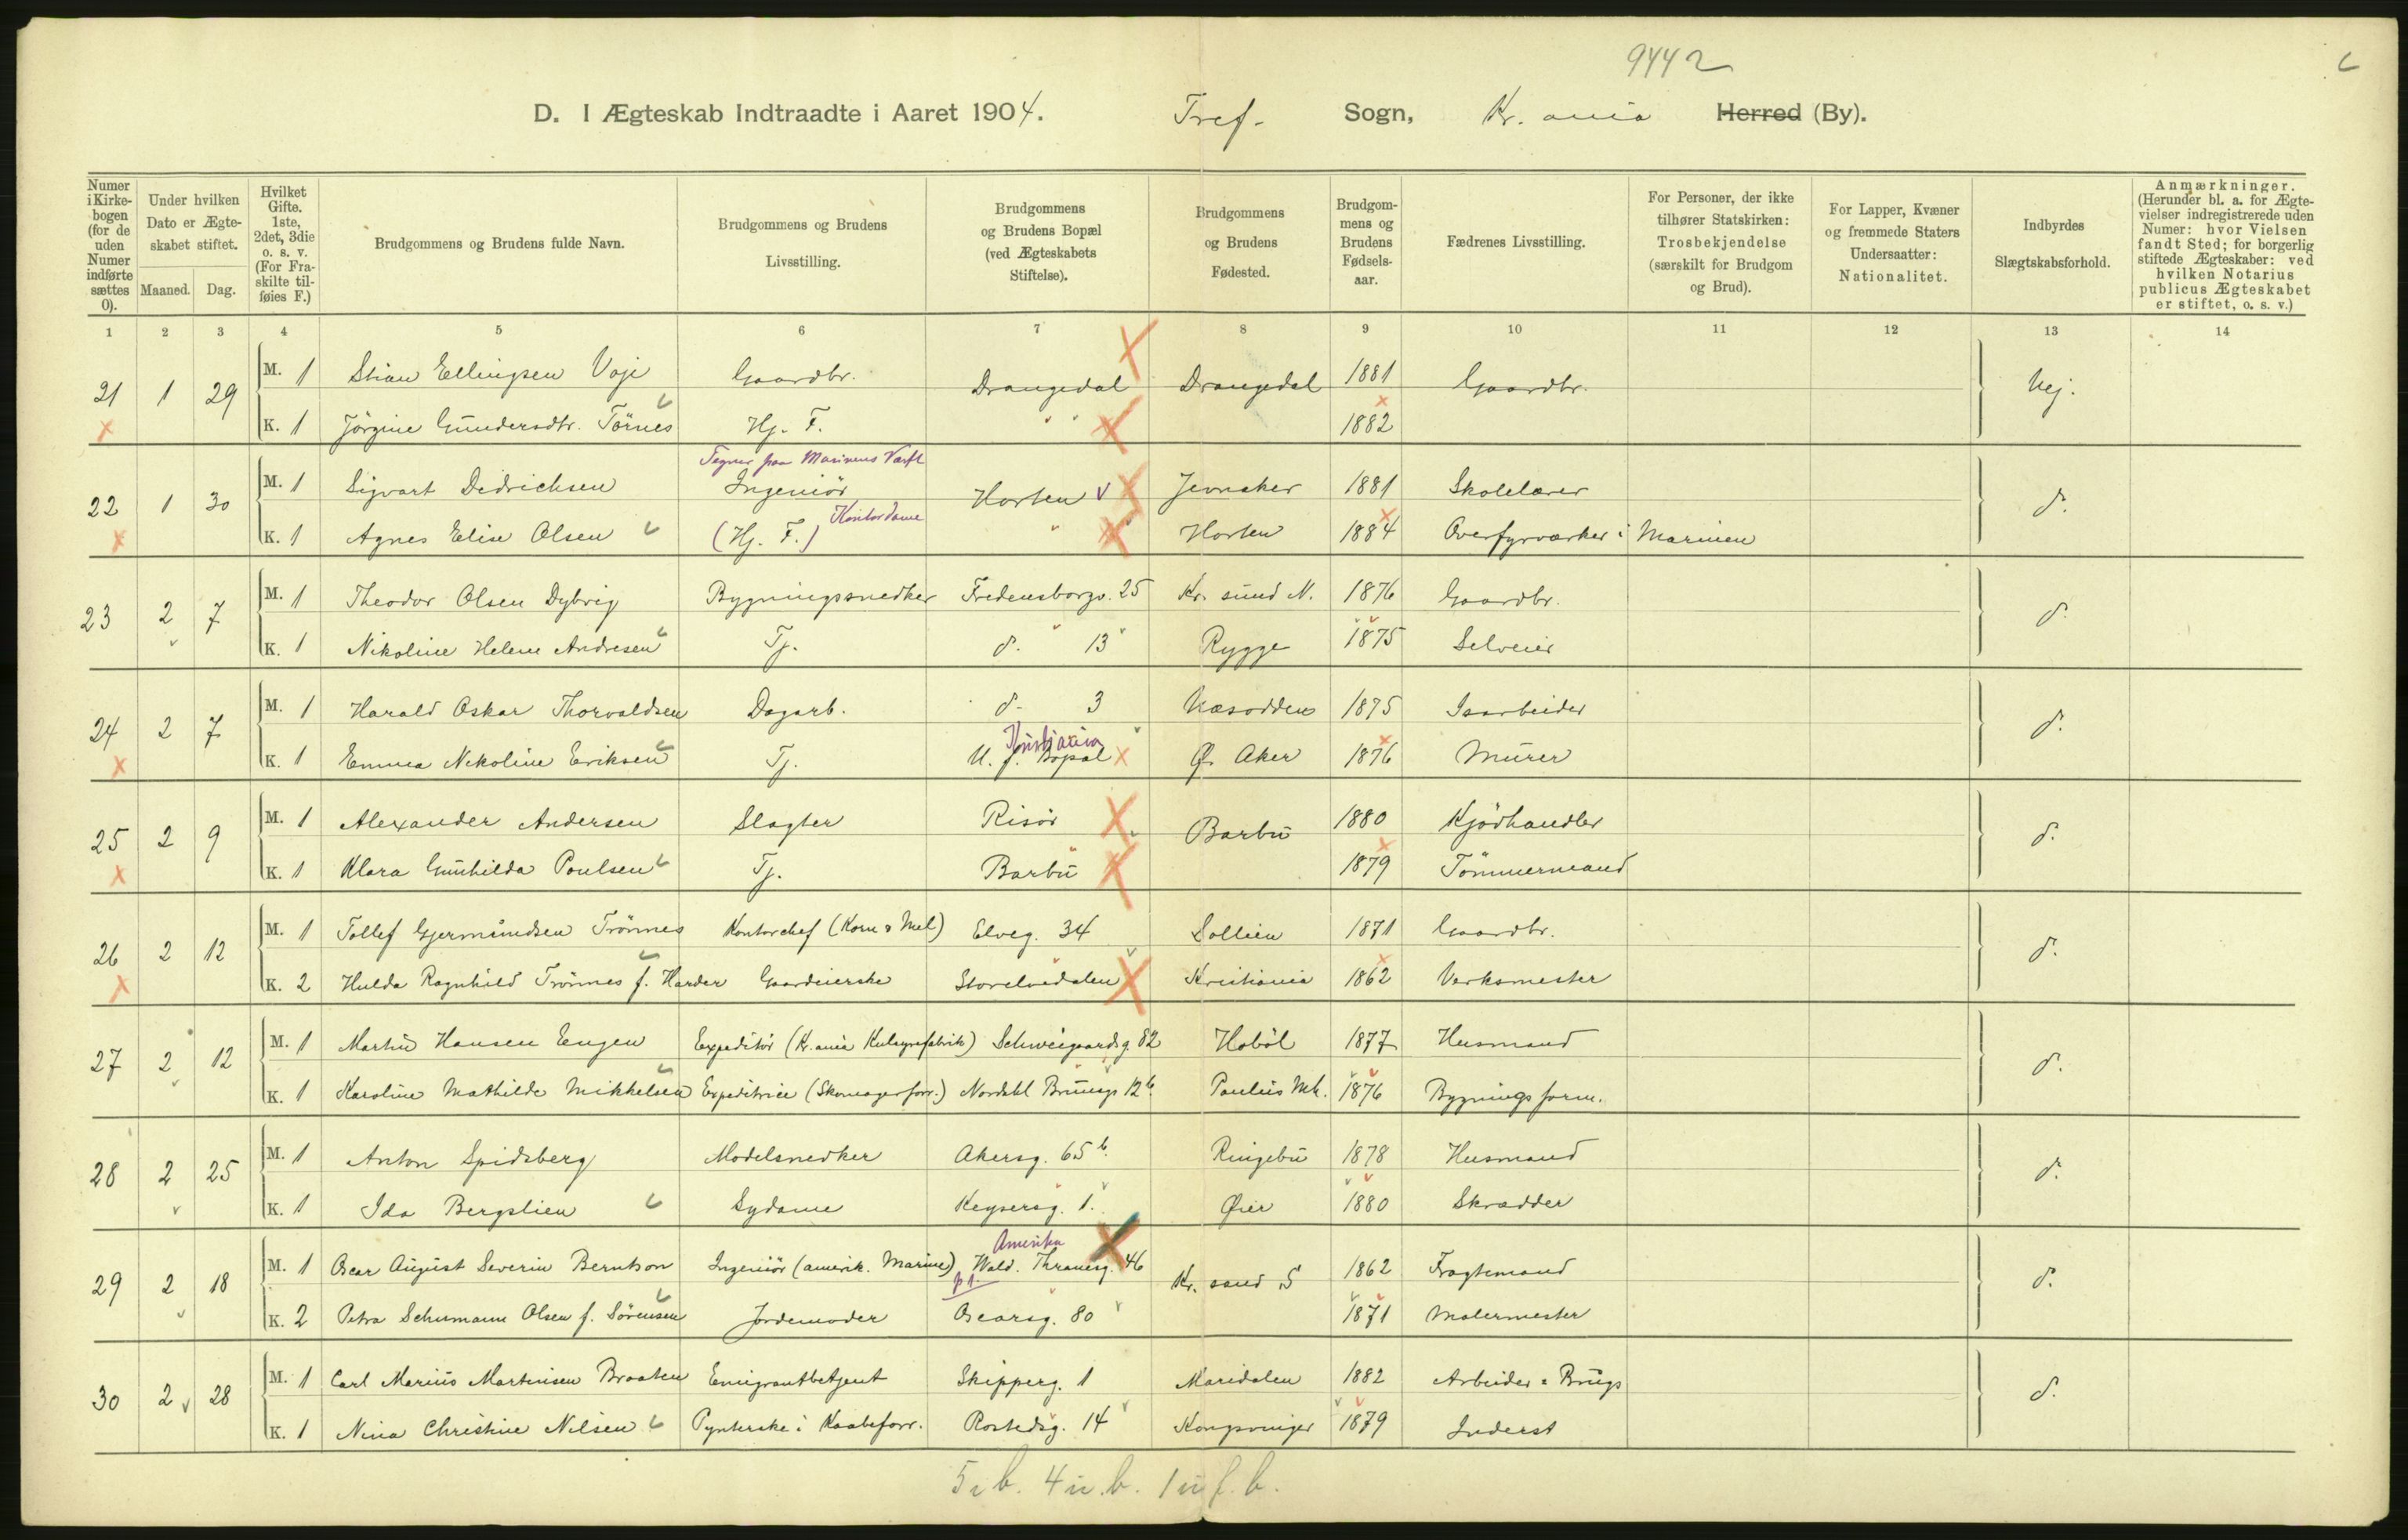 9442
D. I Ægteskab Indtraadte i Aaret 1904. Tref. Sogn, Kr. ania Herred (By).
Numer i Kirkebogen (for de uden Numer indførte sættes 0). Under hvilken Dato er Ægteskabet stiftet. Maaned. Dag. Hvilket Gifte. 1ste, 2det, 3die o. s. v. (For Fraskilte tilføies F.) Brudgommens og Brudens fulde Navn. Brudgommens og Brudens Livsstilling. Brudgommens og Brudens Bopæl (ved Ægteskabets Stiftelse). Brudgommens og Brudens Fødested. Brudgommens og Brudens Fødselsaar. Fædrenes Livsstilling. For Personer, der ikke tilhører Statskirken: Trosbekjendelse (særskilt for Brudgom og Brud). For Lapper, Kvæner og fremmede Staters Undersaatter: Nationalitet. Indbyrdes Slægtskabsforhold. Anmærkninger. (Herunder bl. a. for Ægtevielser indregistrerede uden Numer: hvor Vielsen fandt Sted; for borgerlig stiftede Ægteskaber: ved hvilken Notarius publicus Ægteskabet er stiftet, o. s. v.)
1 2 3 4 5 6 7 8 9 10 11 12 13 14
21 1 29 M. 1 Stian Ellingsen Voje Gaardbr. Drangedal Drangedal 1881 Gaardbr. Nej.
K. 1 Jörgine Gundersdtr. Törnes Hj. F. " " 1882
Tegner paa Marinens Værft
22 1 30 M. 1 Sigvart Didrichsen Ingeniör Horten Jevnaker 1881 Skolelærer d.
K. 1 Agnes Elise Olsen (Hj. F.) Kontordame " " Horten 1884 Overfyrværker i Marinen
23 2 7 M. 1 Theodor Olsen Dybvig Bygningssnedker Fredensborgv. 25 Kr. sund N. 1876 Gaardbr. d.
K. 1 Nikoline Helene Andresen Tj. d. 13 Rygge 1875 Selveier
24 2 7 M. 1 Harald Oskar Thorvaldsen Dagarb. d. 3 Næsodden 1875 Isarbeider d.
Kristiania
K. 1 Emma Nikoline Eriksen Tj. U. f. Bopæl Ø. Aker 1876 Murer
25 2 9 M. 1 Alexander Andersen Slagter Risör Barbu 1880 Kjödhandler d.
K. 1 Klara Gunhilda Poulsen Tj. Barbu 1879 Tömmermand
26 2 12 M. 1 Tollef Gjermundsen Trönnes Kontorchef (Korn & Mel) Elveg. 34 Sollien 1871 Gaardbr. d.
K. 2 Hulda Ragnhild Trönnes f. Harder Gaardeierske Storelvedalen Kristiania 1862 Verksmester
27 2 12 M. 1 Martin Hansen Engen Expeditör (Kr.ania Kulsyrefabrik) Schweigaardsg. 82 Hoböl 1877 Husmand d.
K. 1 Karoline Mathilde Mikkelsen Expeditrice (Skomagerforr.) Nordahl Brunsg. 12 b. Paulus Mk. 1876 Bygningsform.
28 2 25 M. 1 Anton Spidsberg Modelsnedker Akersg. 65 b. Ringebu 1878 Husmand d.
K. 1 Ida Bergslien Sydame Keysersg. 1. Øier 1880 Skrædder
Amerika
29 2 18 M. 1 Oscar August Severin Berntson Ingeniör (amerik. Marine) p.t. Wald. Thranesg. 46 Kr. sand S 1862 Fragtemand d.
K. 2 Petra Schumann Olsen f. Sörensen Jordemoder Oscarsg. 80 1871 Malermester
30 2 28 M. 1 Carl Marius Martinsen Braaten Emigrantbetjent Skipperg. 1 Maridalen 1882 Arbeider = Brugs d.
K. 1 Nina Christine Nilsen Pynterske i Kaabeforr. Rostedsg. 14 Kongsvinger 1879 Inderst
5 i b. 4 u. b. 1 u f. b.